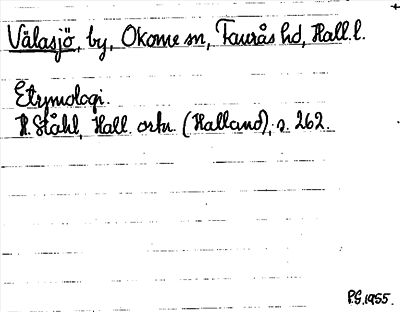 Välasjö, by, Okome sn, Faurås hd, Hall. l.
Etymologi.
H. Ståhl, Hall. ortn. (Halland), s. 262.
P.G. 1955.